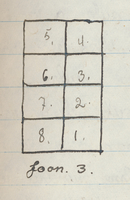 5. 4.
6. 3.
7. 2.
8. 1.
foon. 3.